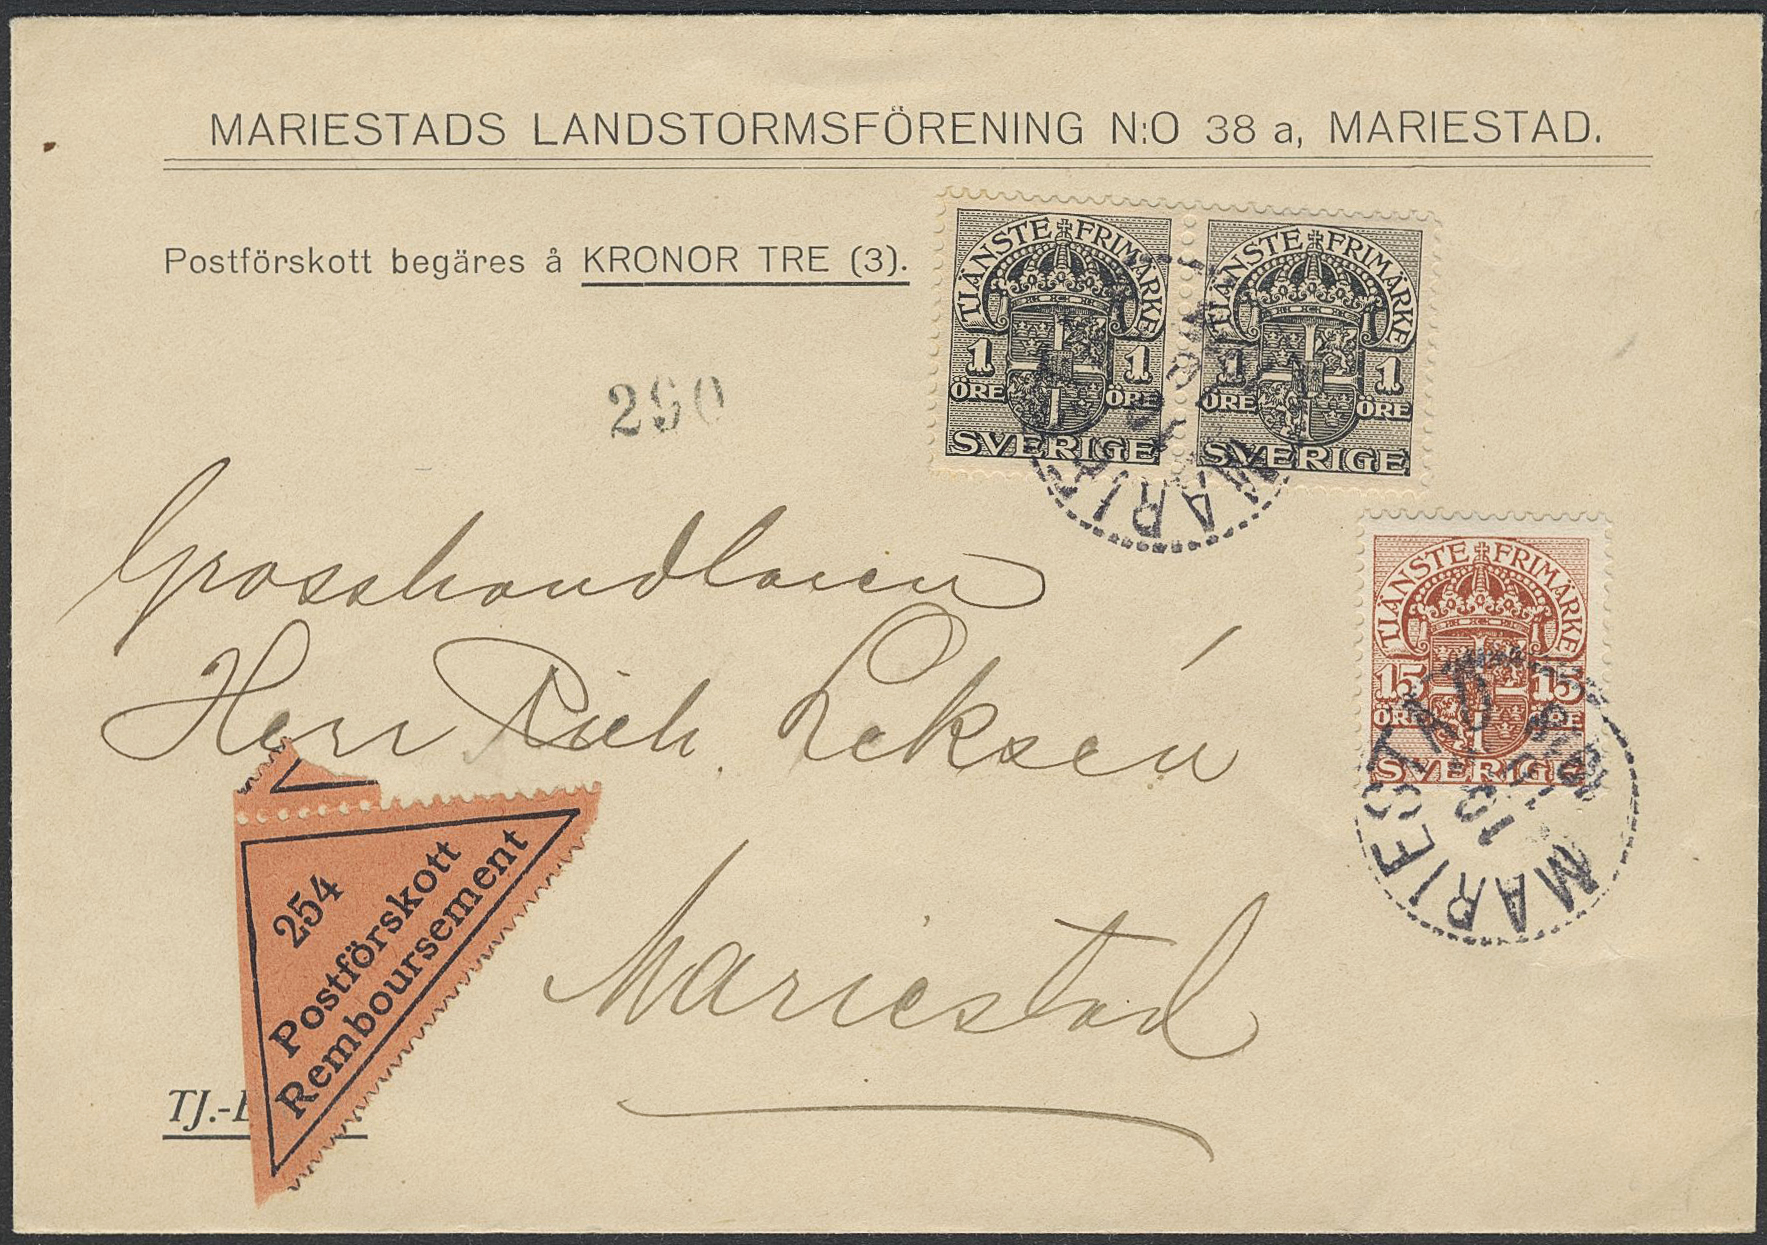 MARIESTADS LANDSTORMSFÖRENING N:O 38 a, MARIESTAD.
Postförskott begäres å KRONOR TRE (3).
TJÄNSTE FRIMÄRKE
1 1
ÖRE ÖRE
SVERIGE
TJÄNSTE FRIMÄRKE
1 1
ÖRE ÖRE
SVERIGE
290
TJÄNSTE FRIMÄRKE
15 15
ÖRE ÖRE
SVERIGE
MARIESTAD
Grosshandlaren
Herr Rich. Leksén
Mariestad
254
Postförskott
Remboursement
TJ.-